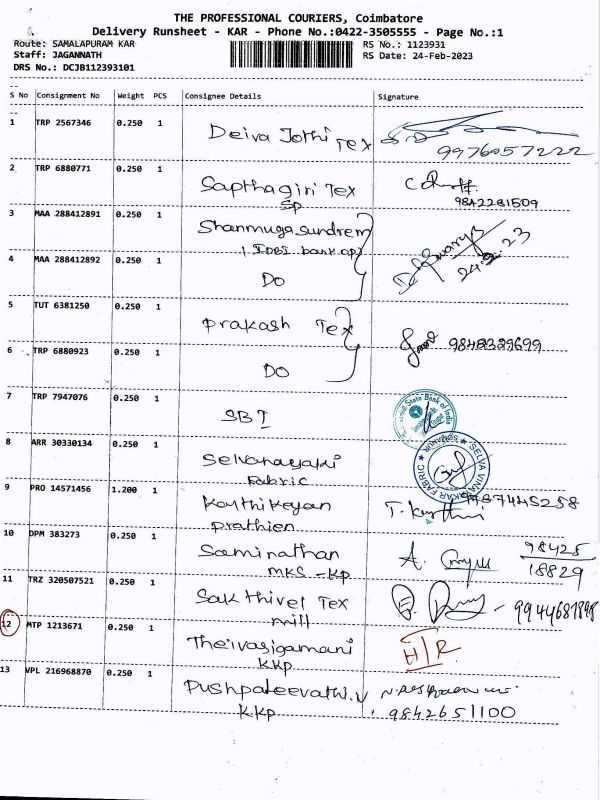 THE PROFESSIONAL COURIERS, Coimbatore
Delivery Runsheet - KAR - Phone No.:0422-3505555 - Page No.:1
Route: SAMALAPURAM KAR
RS No.: 1123931
Staff: JAGANNATH
RS Date: 24-Feb-2023
DRS No.: DCJB112393101
S No Consignment No Weight PCS Consignee Details Signature
1 TRP 2567346 0.250 1 Deiva Jothi Tex
9976057222
2 TRP 6880771 0.250 1 Sapthagiri Tex
SP 9842281509
3 MAA 288412891 0.250 1 Shanmuga Sundrem
4 MAA 288412892 0.250 1 DO
5 TUT 6381250 0.250 1 Prakash Tex
6 TRP 6880923 0.250 1 DO
7 TRP 7947076 0.250 1 SBI
State Bank of India
8 ARR 30330134 0.250 1 Selvanayaki
Fabric
9 PRO 14571456 1.200 1 Karthikeyan
Prathien
10 DPM 383273 0.250 1 Saminathan 98425
MKS - KP 18829
11 TRZ 320507521 0.250 1 Sakthivel Tex
mill
12 MTP 1213671 0.250 1 Theivasigamani H/R
KKP
13 VPL 216968870 0.250 1 Pushpateevathi.V
KKP 9842651100